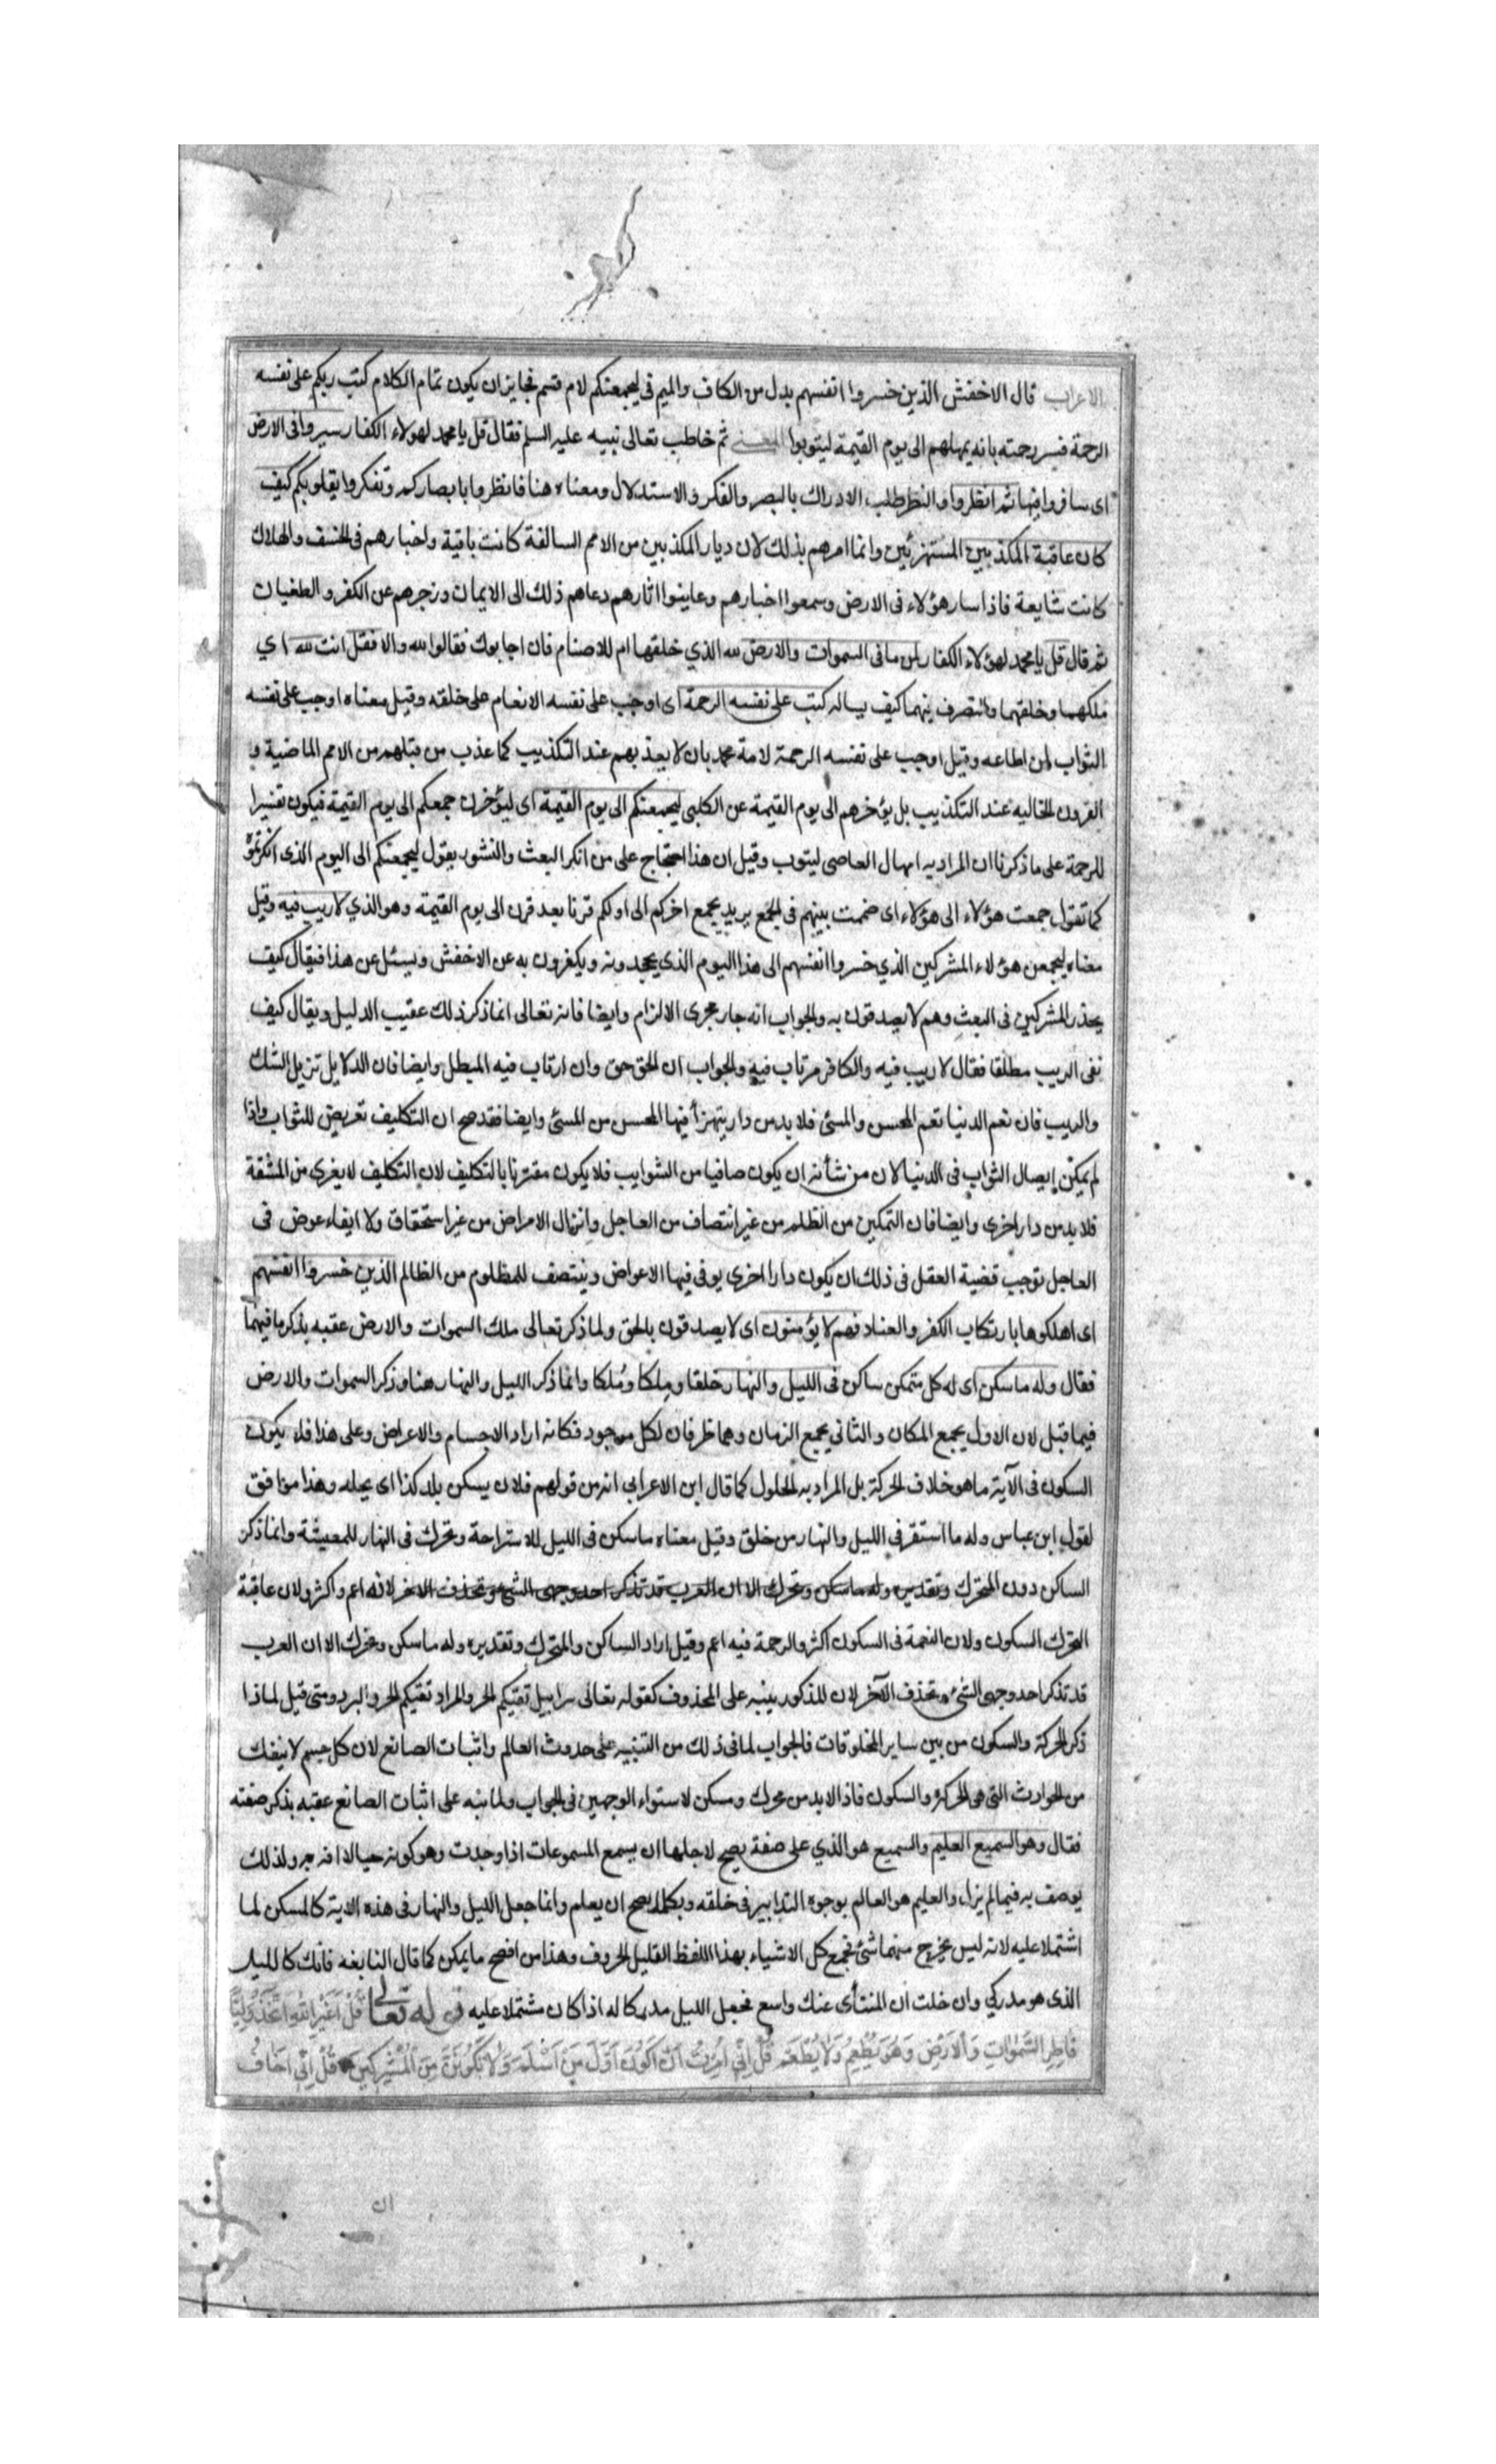 الاعراب قال الاخفش الذين خسروا انفسهم بدل من الكاف والميم فى ليجمعنكم لام قسم فجايز ان يكون تمام الكلام كتب ربكم على نفسه
الرحمة فسر رحمته بانه يمهلهم الى يوم القيمة ليتوبوا المعنى ثم خاطب تعالى نبيه عليه السلم فقال قل يا محمد لهولاء الكفار سيروا فى الارض
اى سافروا فيها ثم انظروا والنظر طلب الادراك بالبصر والفكر والاستدلال ومعناه هنا فانظروا بابصاركم وتفكروا بقلوبكم كيف
كان عاقبة المكذبين المستهزئين وانما امرهم بذلك لان ديار المكذبين من الامم السالفة كانت باقية واخبارهم فى الخسف والهلاك
كانت شايعة فاذا سار هؤلاء فى الارض وسمعوا اخبارهم وعاينوا اثارهم دعاهم ذلك الى الايمان وزجرهم عن الكفر والطغيان
ثم قال قل يا محمد لهؤلاء الكفار لمن ما فى السموات والارض لله الذي خلقها ام للاصنام فان اجابوك فقالوا لله والا فقل انت لله اي
ملكهما وخلقهما والتصرف فيهما كيف يساله كتب على نفسه الرحمة اى اوجب على نفسه الانعام على خلقه وقيل معناه اوجب على نفسه
الثواب لمن اطاعه وقيل اوجب على نفسه الرحمة لامة محمد بان لا يعذبهم عند التكذيب كما عذب من قبلهم من الامم الماضية و
القرون الخاليه عند التكذيب بل يؤخرهم الى يوم القيمة عن الكلبى ليجمعنكم الى يوم القيمة اى ليؤخرن جمعكم الى يوم القيمة فيكون تفسيرا
للرحمة على ما ذكرنا ان المراد به امهال العاصى ليتوب وقيل ان هذا احتجاج على من انكر البعث والنشور يقول ليجمعنكم الى اليوم الذى انكرتموه
كما تقول جمعت هؤلاء الى هؤلاء اى ضممت بينهم فى الجمع يريد بجمع اخركم الى اولكم قرنا بعد قرن الى يوم القيمة وهو الذي لا ريب فيه وقيل
معناه ليجمعن هؤلاء المشركين الذي خسروا انفسهم الى هذا اليوم الذي يجحدونه ويكفرون به عن الاخفش ويسئل عن هذا فيقال كيف
يحذر المشركين فى البعث وهم لا يصدقون به والجواب انه جار مجرى الالزام وايضا فانه تعالى انما ذكر ذلك عقيب الدليل ويقال كيف
نفى الريب مطلقا فقال لا ريب فيه والكافر مرتاب فيه والجواب ان الحق حق وان ارتاب فيه المبطل وايضا فان الدلايل تزيل الشك
والريب فان نعم الدنيا تعم المحسن والمسئ فلا بد من دار يتميز فيها المحسن من المسئ وايضا فقد صح ان التكليف تعريض للثواب واذا
لم يمكن ايصال الثواب فى الدنيا لان من شأنه ان يكون صافيا من الشوايب فلا يكون مقترنا بالتكليف لان التكليف لا يعرى من المشقة
فلا بد من دار اخرى وايضا فان التمكين من الظلم من غير انتصاف من العاجل وانزال الامراض من غير استحقاق ولا ايفاء عوض فى
العاجل توجب قضية العقل فى ذلك ان يكون دارا اخرى يوفى فيها الاعواض وينتصف للمظلوم من الظالم الذين خسروا انفسهم
اى اهلكوها بارتكاب الكفر والعناد فهم لا يؤمنون اى لا يصدقون بالحق ولما ذكر تعالى ملك السموات والارض عقبه بذكر ما فيهما
فقال وله ما سكن اى له كل متمكن ساكن فى الليل والنهار خلقا وملكا وملكا وانما ذكر الليل والنهار هنا وذكر السموات والارض
فيما قبل لان الاول يجمع المكان والثانى يجمع الزمان وهما ظرفان لكل موجود فكانه اراد الاجسام والاعراض وعلى هذا فلا يكون
السكون فى الآية ما هو خلاف الحركة بل المراد به الحلول كما قال ابن الاعرابي انه من قولهم فلان يسكن بلد كذا اى يحله وهذا موافق
لقول ابن عباس وله ما استقر في الليل والنهار من خلق وقيل معناه ما سكن فى الليل للاستراحة وتحرك فى النهار للمعيشة وانما ذكر
الساكن دون المتحرك وتقديره وله ما سكن وتحرك الا ان العرب قد تذكر احد وجهى الشئ وتحذف الاخر لانه اعم واكثر ولان عاقبة
التحرك السكون ولان النعمة فى السكون اكثر والرحمة فيه اعم وقيل اراد الساكن والمتحرك وتقديره وله ما سكن وتحرك الا ان العرب
قد تذكر احد وجهى الشئ وتحذف الآخر لان المذكور ينبه على المحذوف كقوله تعالى سرابيل تقيكم الحر والمراد تقيكم الحر والبرد ومتى قيل لماذا
ذكر الحركة والسكون من بين ساير المخلوقات فالجواب لما فى ذلك من التنبيه على حدوث العالم واثبات الصانع لان كل جسم لا ينفك
من الحوادث التى هى الحركة والسكون فاذا لا بد من محرك ومسكن لاستواء الوجهين فى الجواب ولما نبه على اثبات الصانع عقبه بذكر صفته
فقال وهو السميع العليم والسميع هو الذي على صفة يصح لاجلها ان يسمع المسموعات اذا وجدت وهو كونه حيا لا افة به ولذلك
يوصف به فيما لم يزل والعليم هو العالم بوجوه التدابير فى خلقه وبكلما يصح ان يعلم وانما جعل الليل والنهار فى هذه الاية كالمسكن لما
اشتملا عليه لانه ليس يخرج منهما شئ فجمع كل الاشياء بهذا اللفظ القليل الحروف وهذا من افصح ما يمكن كما قال النابغه فانك كالليل
الذى هو مدركي وان خلت ان المنتأى عنك واسع فجعل الليل مدركا له اذا كان مشتملا عليه قوله تعالى قُلْ اَغَيْرَ اللهِ اَتَّخِذُ وَلِيًّا
فَاطِرِ السَّمٰوَاتِ وَالْاَرْضِ وَهُوَ يُطْعِمُ وَلَا يُطْعَمُ قُلْ اِنِّي اُمِرْتُ اَنْ اَكُونَ اَوَّلَ مَنْ اَسْلَمَ وَلَا تَكُونَنَّ مِنَ الْمُشْرِكِينَ قُلْ اِنِّي اَخَافُ
ان